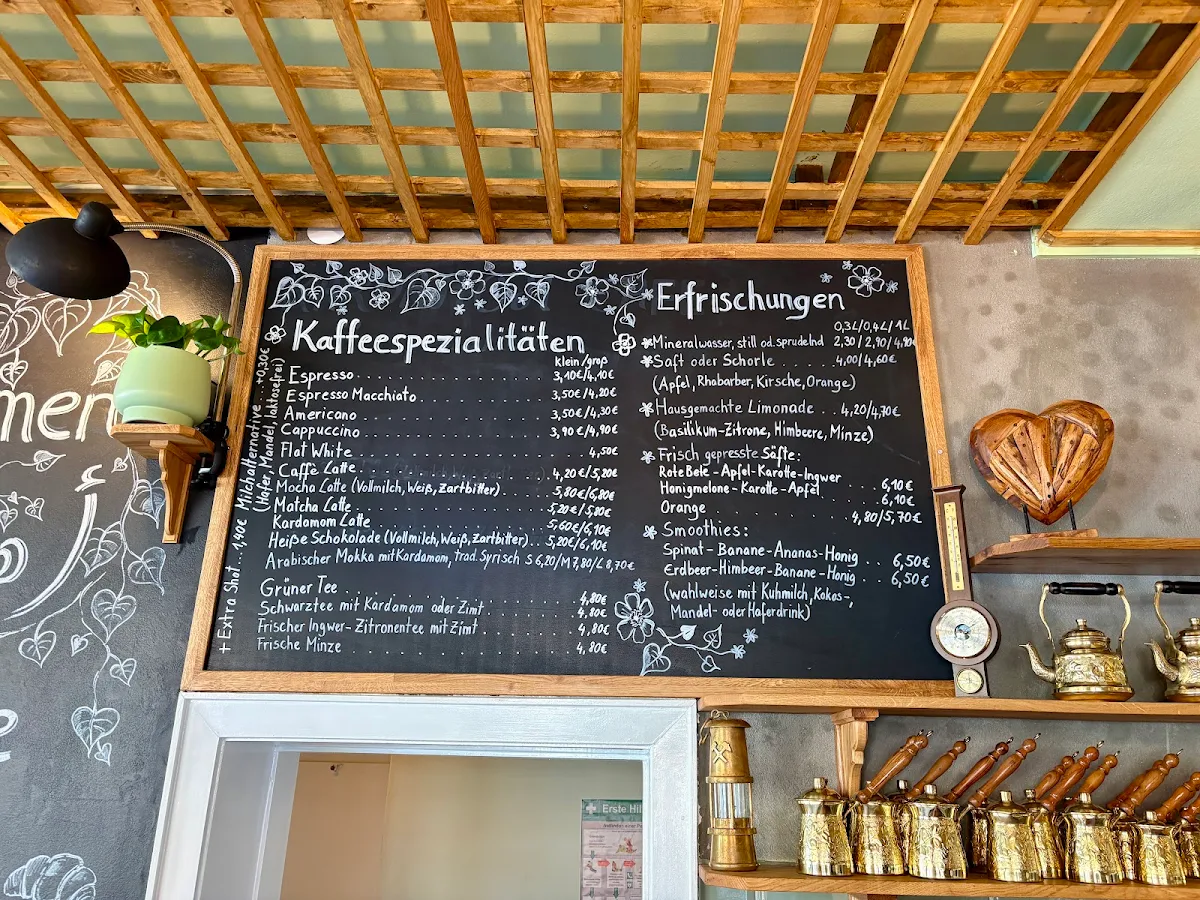 Kaffeespezialitäten
klein/groß
Espresso 3,10€/4,10€
Espresso Macchiato 3,50€/4,20€
Americano 3,50€/4,30€
Cappuccino 3,90€/4,90€
Flat White 4,50€
Caffè Latte 4,20€/5,20€
Mocha Latte (Vollmilch, Weiß, Zartbitter) 5,80€/6,80€
Matcha Latte 5,20€/5,80€
Kardamom Latte 5,60€/6,10€
Heiße Schokolade (Vollmilch, Weiß, Zartbitter) 5,20€/6,10€
Arabischer Mokka mit Kardamom, trad. Syrisch S 6,20/M 7,80/L 8,70€
Grüner Tee 4,80€
Schwarztee mit Kardamom oder Zimt 4,80€
Frischer Ingwer-Zitronentee mit Zimt 4,80€
Frische Minze 4,80€
+ Extra Shot 1,40€ Milchalternative +0,30€
(Hafer, Mandel, laktosefrei)
Erfrischungen
0,3L/0,4L/1L
Mineralwasser, still od. sprudelnd 2,30/2,90/4,90
Saft oder Schorle 4,00/4,60€
(Apfel, Rhabarber, Kirsche, Orange)
Hausgemachte Limonade 4,20/4,70€
(Basilikum-Zitrone, Himbeere, Minze)
Frisch gepresste Säfte:
Rote Bete-Apfel-Karotte-Ingwer 6,10€
Honigmelone-Karotte-Apfel 6,10€
Orange 4,80/5,70€
Smoothies:
Spinat-Banane-Ananas-Honig 6,50€
Erdbeer-Himbeer-Banane-Honig 6,50€
(wahlweise mit Kuhmilch, Kokos-,
Mandel- oder Haferdrink)
Erste Hil